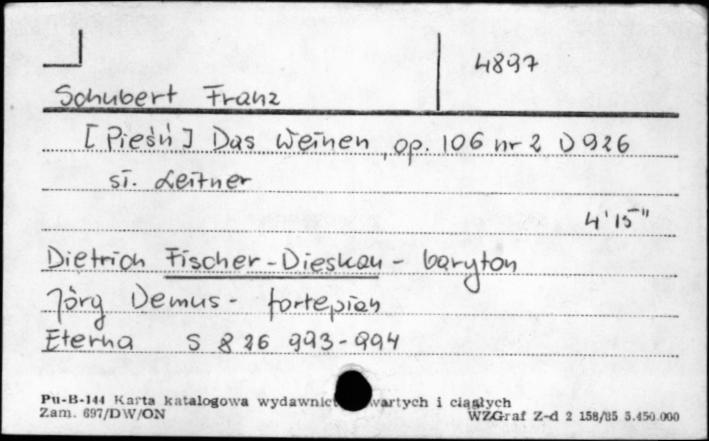 4897
Schubert Franz
[Pieśń] Das Weinen, op. 106 nr 2 D 926
sł. Leitner
4'15"
Dietrich Fischer-Dieskau - baryton
Jörg Demus - fortepian
Eterna S 8 26 993-994
Pu-B-144 Karta katalogowa wydawnict wartych i ciągłych
Zam. 697/DW/ON WZGraf Z-d 2 158/85 5.450.000